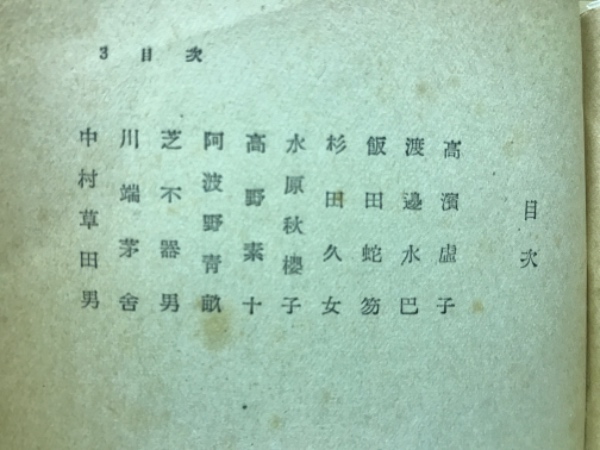 3 目次
目次
高濱虚子
渡邊水巴
飯田蛇笏
杉田久女
水原秋櫻子
高野素十
阿波野青畝
芝不器男
川端茅舍
中村草田男